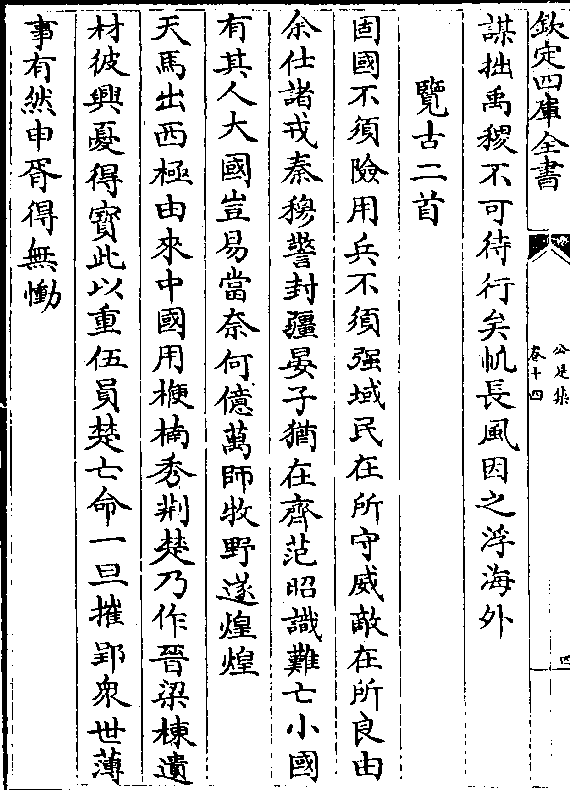 欽定四庫全書
公是集
卷十四
四
謀拙禹稷不可待行矣帆長風因之浮海外
覽古二首
固國不須險用兵不須强域民在所守威敵在所良由
余仕諸戎秦穆警封疆晏子猶在齊范昭識難亡小國
有其人大國豈易當奈何億萬師牧野遂煌煌
天馬出西極由來中國用楩楠秀荆楚乃作晉梁棟遺
材彼興憂得寳此以重伍員楚亡命一旦摧郢衆世薄
事有然申胥得無慟